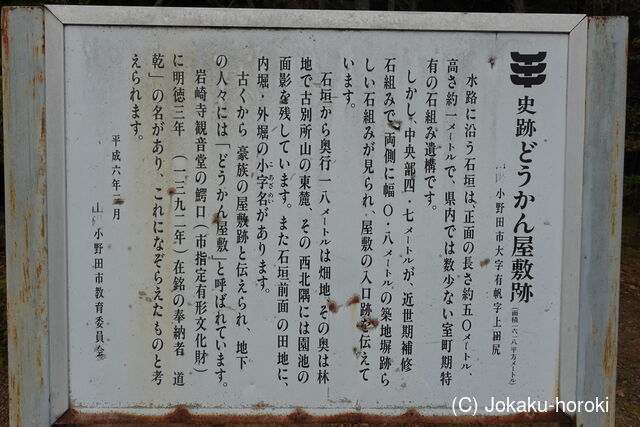 史跡 どうかん屋敷跡
小野田市大字有帆字上困尻
水路に沿う石垣は、正面の長さ約五〇メートル、
高さ約一メートルで、県内では数少ない室町期特
有の石組み遺構です。
しかし、中央部四・七メートルが、近世期補修
石組みで、両側に幅〇・八メートルの築地塀跡ら
しい石組みが見られ、屋敷の入口跡を伝えて
います。
石垣から奥行一八メートルは畑地、その奥は林
地で古別所山の東麓、その西北隅には園池の
面影を残しています。また石垣前面の田地に、
内堀・外堀の小字名があります。
こあざめい
古くから 豪族の屋敷跡と伝えられ、地下
の人々には「どうかん屋敷」と呼ばれています。
岩崎寺観音堂の鰐口(市指定有形文化財)
に明徳三年(一三九二年)在銘の奉納者 道
乾」の名があり、これになぞらえたものと考
えられます。
平成六年 月
山 小野田市教育委員会
(C) Jokaku-horoki